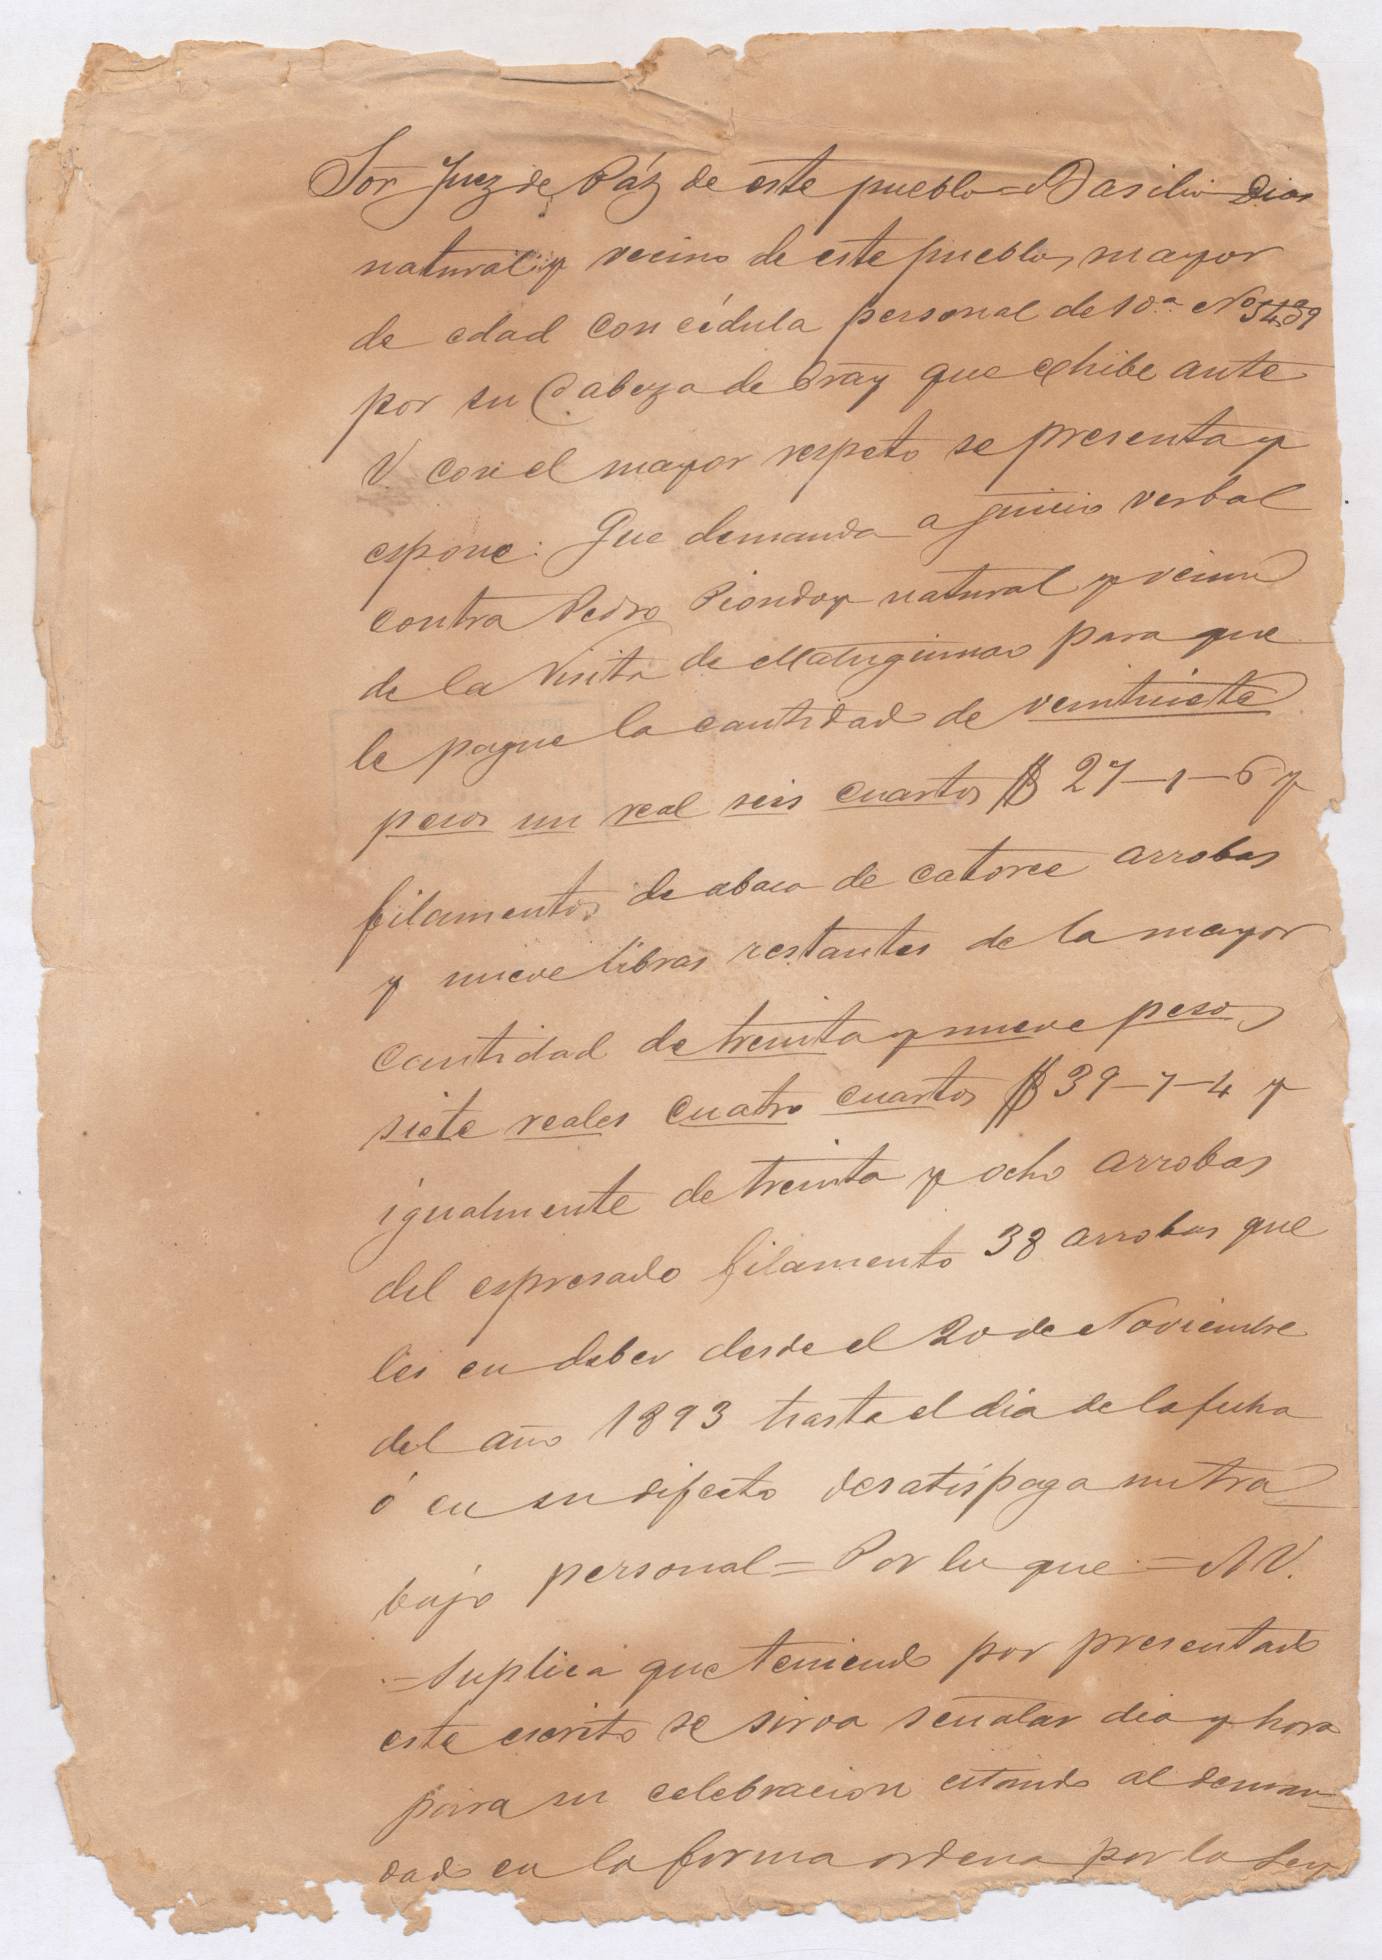 Sor Juez de Páz de este pueblo = Basilio Dias
natural y vecino de este pueblo, mayor
de edad con cédula personal de 10ª No 5439
por su Cabeza de Bray que exhibe ante
V. con el mayor respeto se presenta y
espone: Que demanda a juicio verbal
contra Pedro Piondoy natural y vecino
de la Visita de para que
le pague la cantidad de veintisiete
pesos un real seis cuartos $ 27-1-6 y
filamentos de abaca de catorce arrobas
y nueve libras restantes de la mayor
cantidad de treinta y nueve pesos
siete reales cuatro cuartos $ 39-7-4 y
igualmente de treinta y ocho arrobas
del espresado filamento 38 arrobas que
les en deber desde el 20 de Noviembre
del año 1893 hasta el dia de la fecha
ó en su difecto desatispaga mi tra
bajo personal = Por lo que = A V.
= Suplica que teniendo por presentado
este escrito se sirva señalar dia y hora
para su celebracion citando al deman
dado en la forma ordena por la Ley